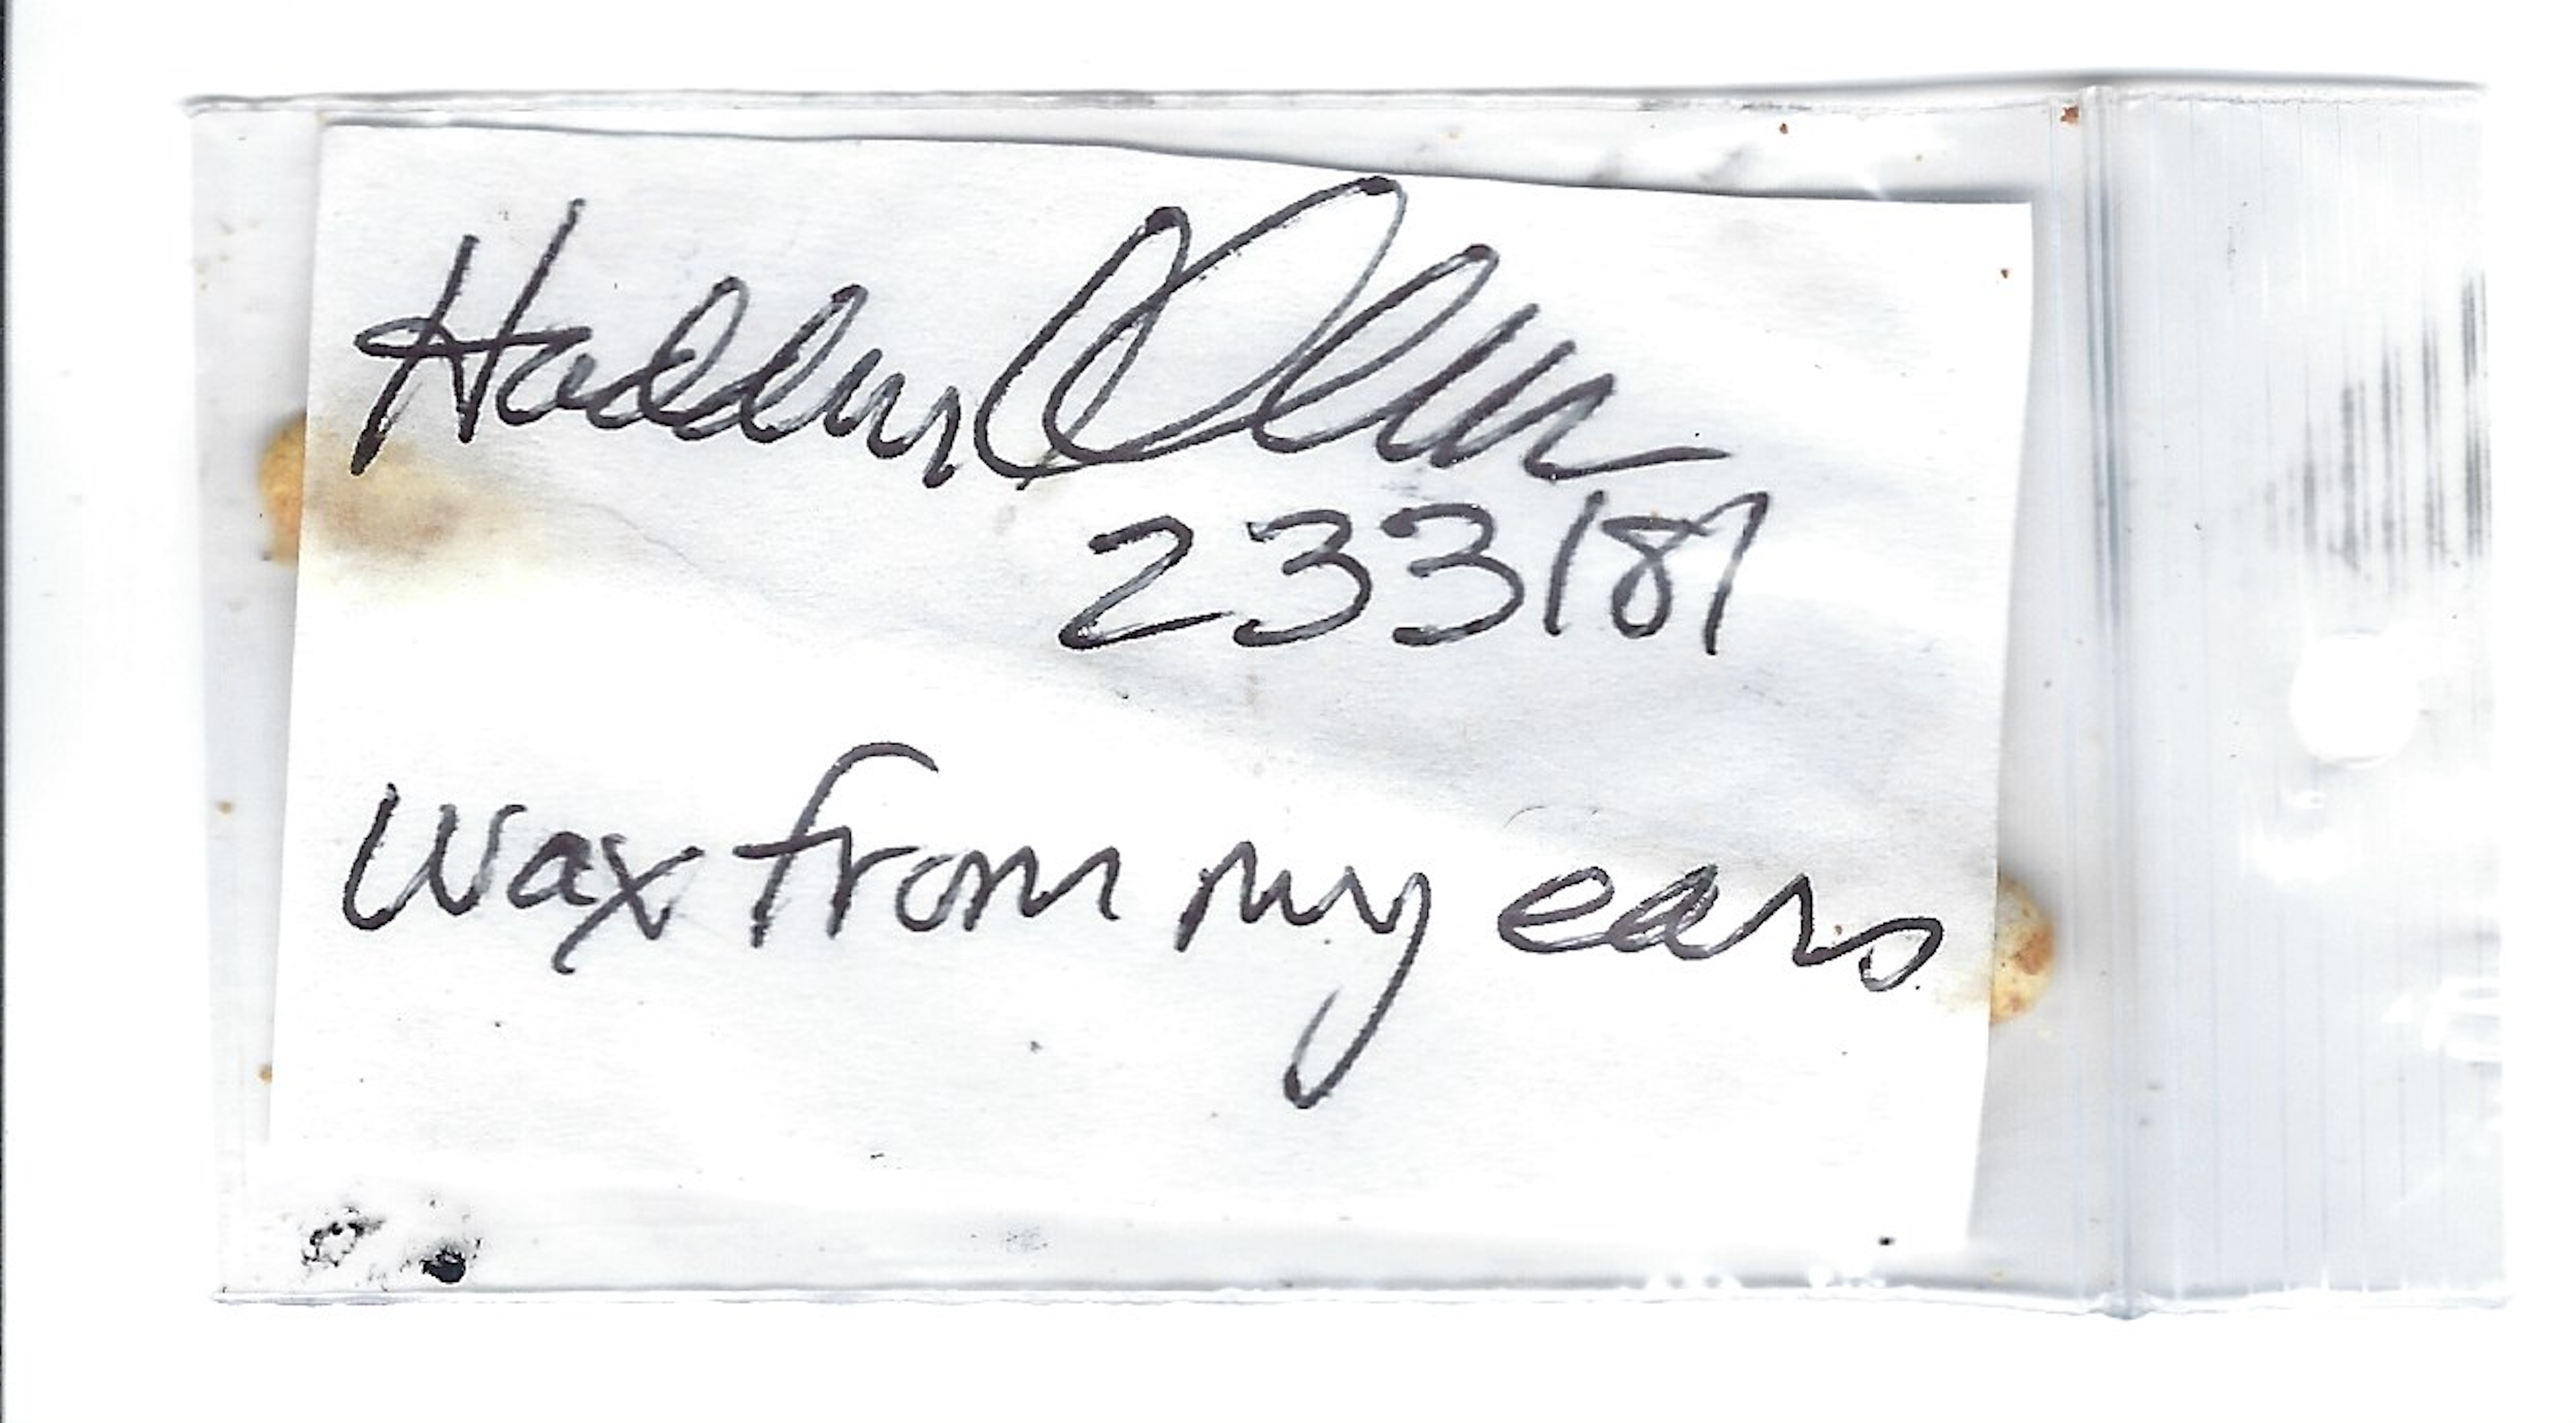 Hadden Clark
233187
Wax from my ears